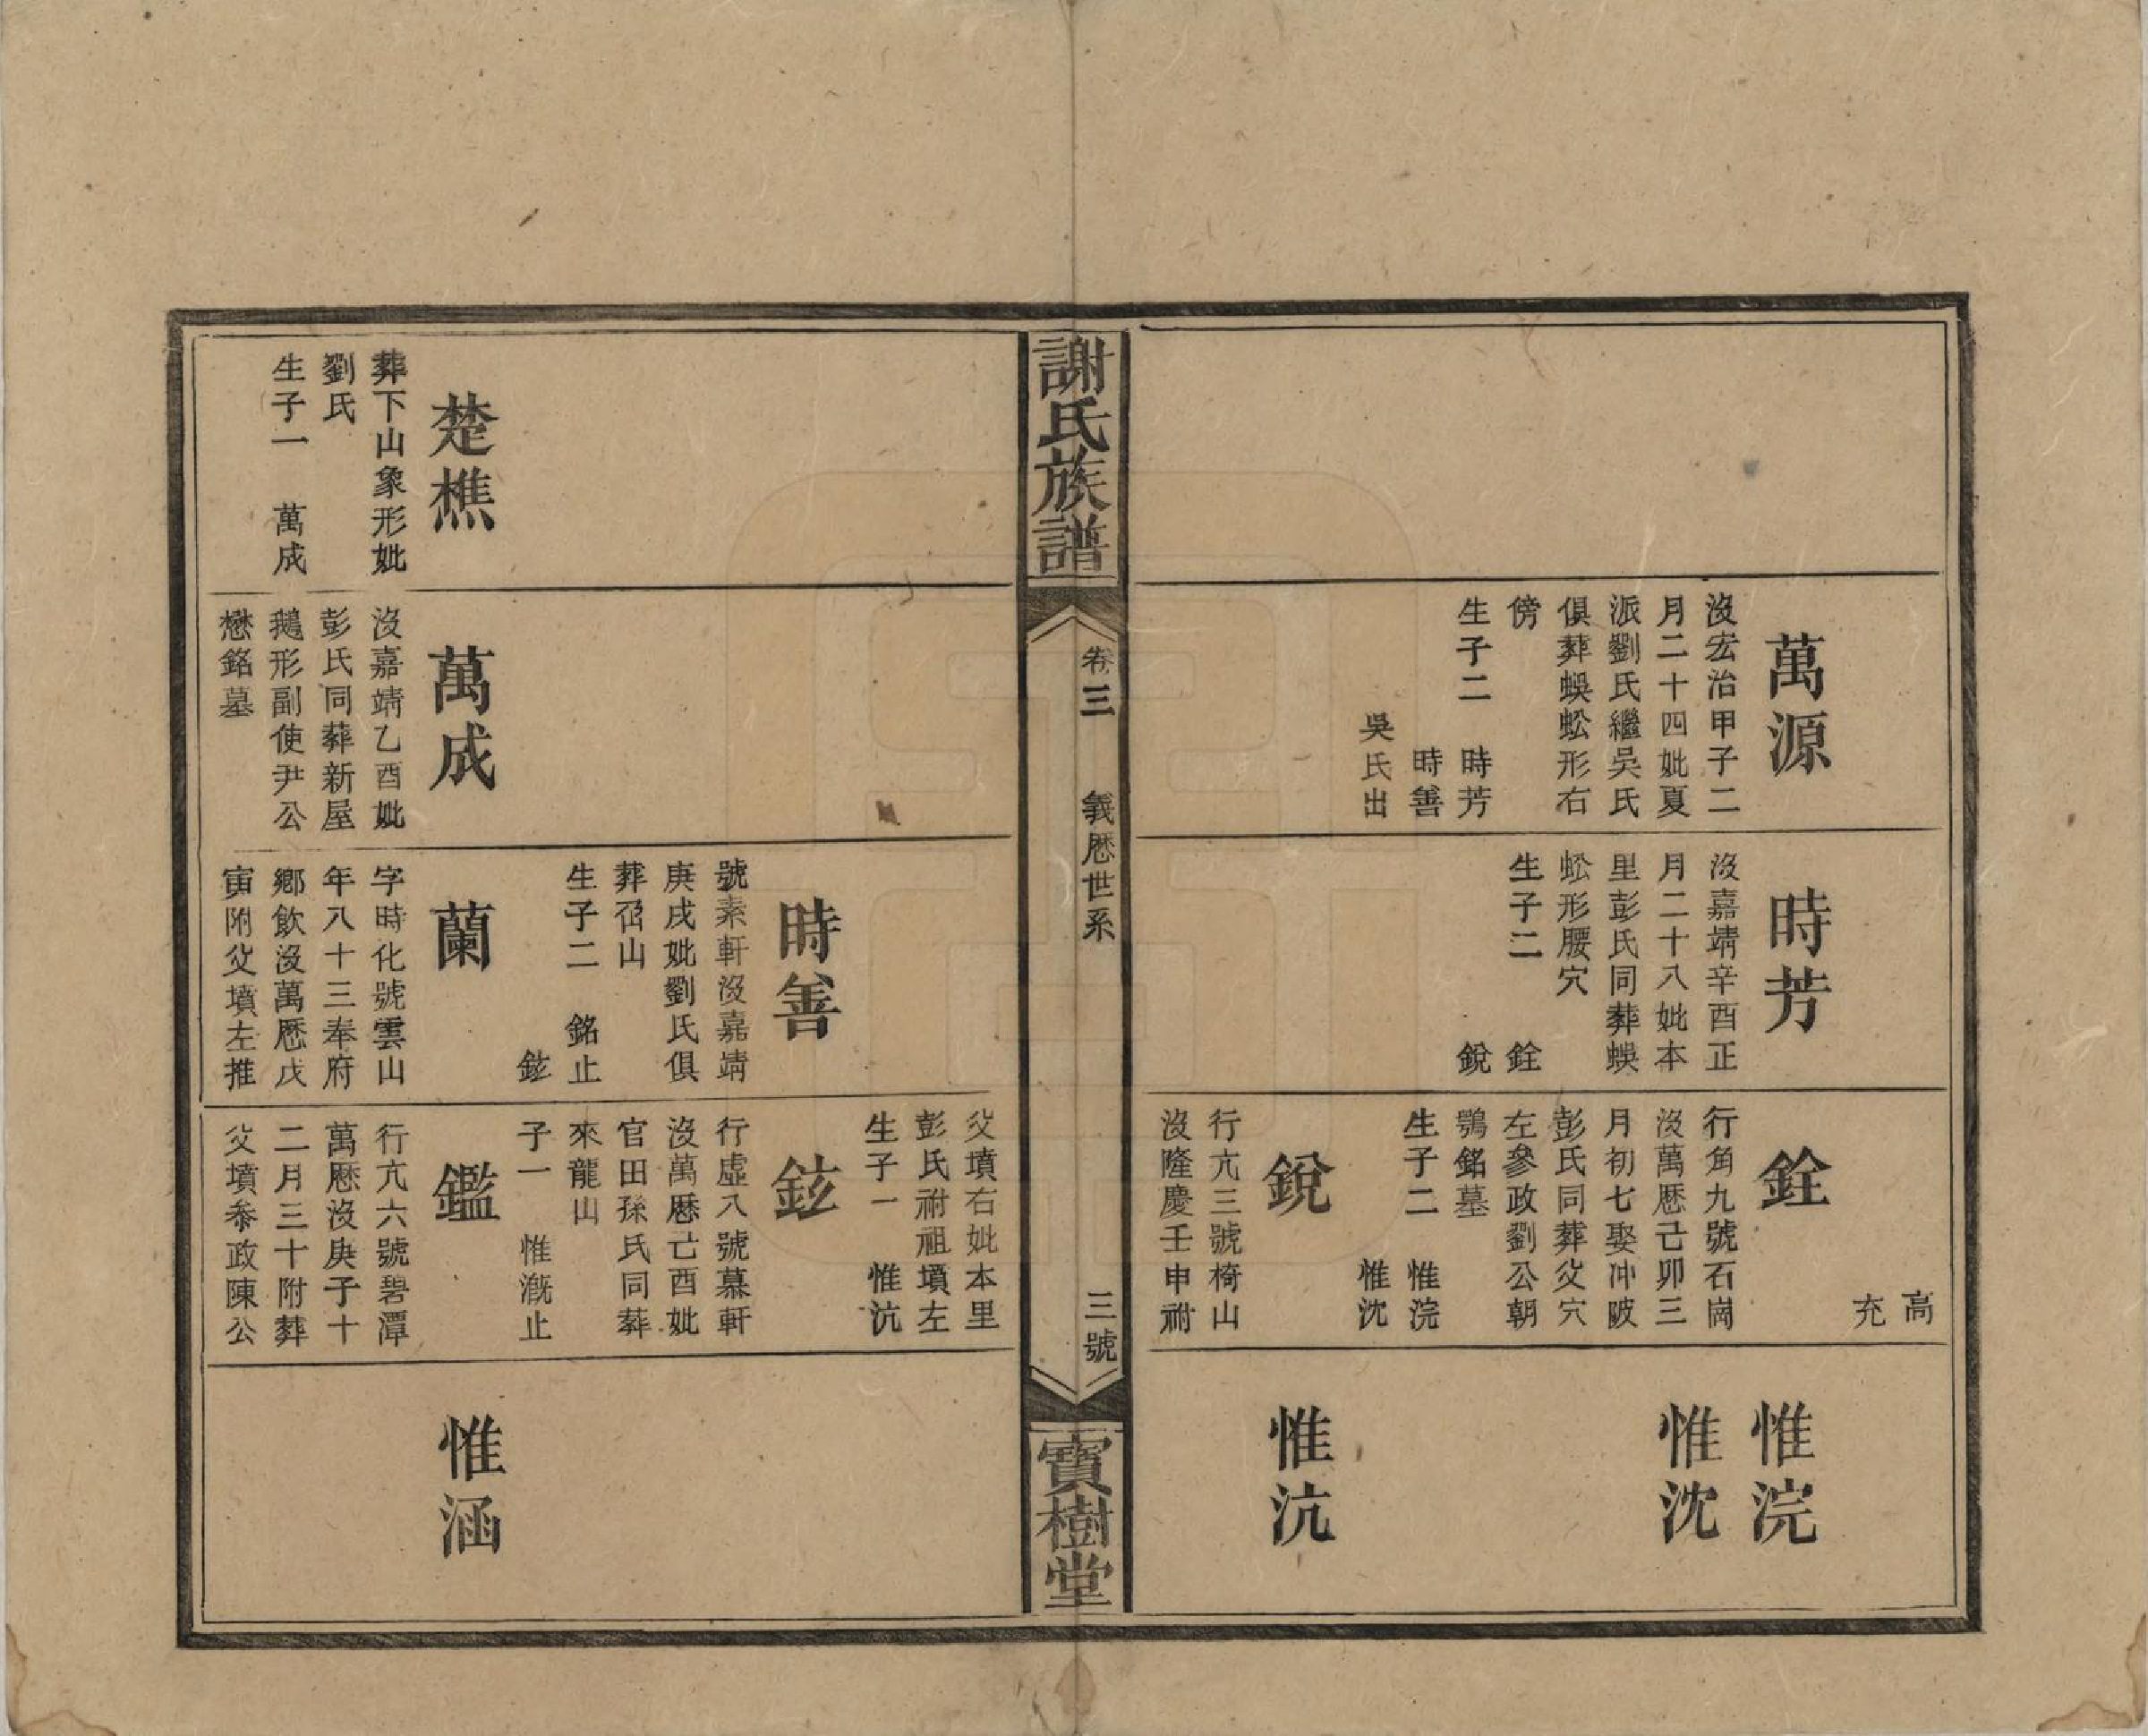 萬源
沒宏治甲子二
月二十四妣夏
派劉氏繼吳氏
俱葬蜈蚣形右
傍
生子二　時芳
時善
吳氏出
時芳
沒嘉靖辛酉正
月二十八妣本
里彭氏同葬蜈
蚣形腰穴
生子二　銓
銳
高
充
銓
行角九號石崗
沒萬厯己卯三
月初七娶冲陂
彭氏同葬父穴
左參政劉公朝
鶚銘墓
生子二　惟浣
惟沈
銳
行亢三號椅山
沒隆慶壬申祔
惟浣
惟沈
惟沆
謝氏族譜
卷三　義厯世系　三號
寶樹堂
楚樵
葬下山象形妣
劉氏
生子一　萬成
萬成
沒嘉靖乙酉妣
彭氏同葬新屋
鵝形副使尹公
懋銘墓
時善
號素軒沒嘉靖
庚戌妣劉氏俱
葬㕣山
生子二　銘止
鉉
蘭
字時化號雲山
年八十三奉府
鄉飲沒萬厯戊
寅附父墳左推
父墳右妣本里
彭氏祔祖墳左
生子一　惟沆
鉉
行虛八號慕軒
沒萬厯己酉妣
官田孫氏同葬
來龍山
子一　惟溉止
鑑
行亢六號碧潭
萬厯沒庚子十
二月三十附葬
父墳叅政陳公
惟涵